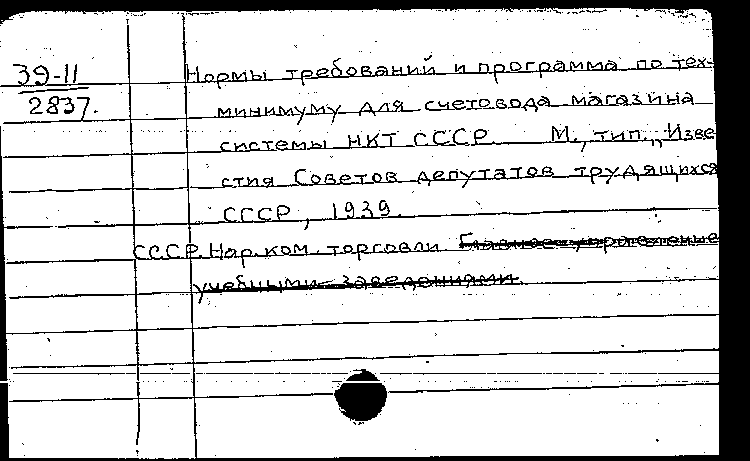 39-II
2837.
Нормы требований и программа по тех-
минимуму для счетовода магазина
системы НКТ СССР М., тип. „Изве
стия Советов депутатов трудящихся
СССР, 1939.
СССР. Нар. ком. торговли Главное управление
учебными заведениями.